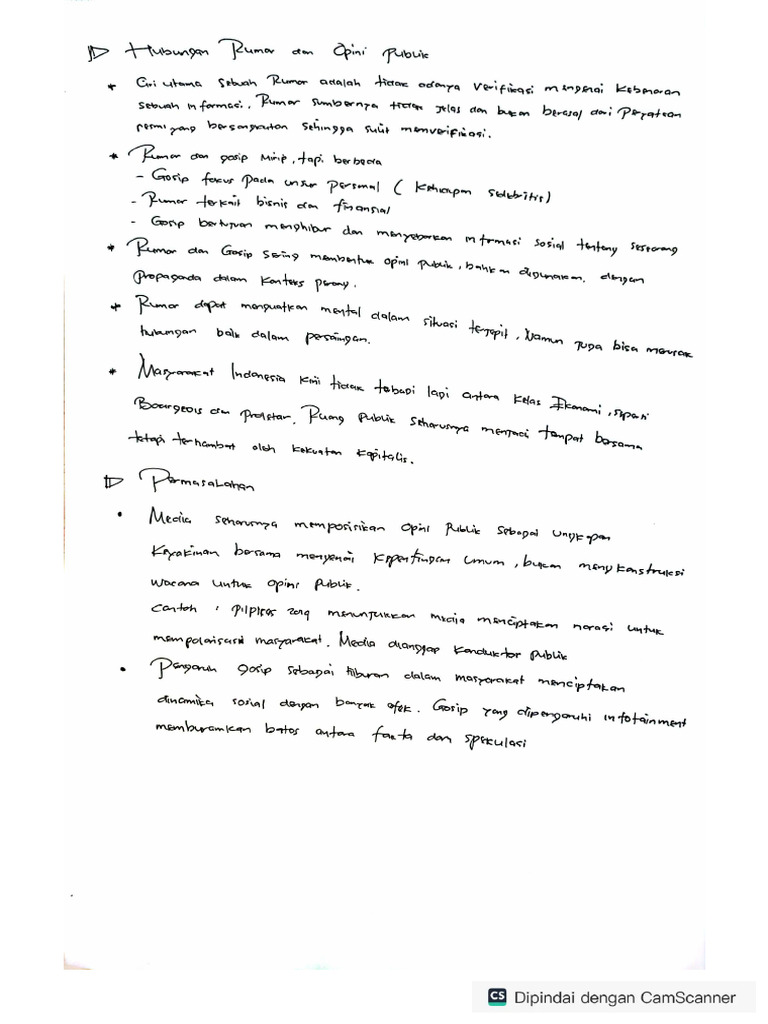 Hubungan Rumor dan Opini Publik
* Ciri utama sebuah Rumor adalah tidak adanya verifikasi mengenai kebenaran
sebuah informasi. Rumor sumbernya tidak jelas dan bukan berasal dari Peryataan
resmi yang bersangkutan sehingga sulit memverifikasi.
* Rumor dan gosip mirip, tapi berbeda
- Gosip fokus pada unsur personal (kehidupan selebritis)
- Rumor terkait bisnis dan finansial
- Gosip bertujuan menghibur dan menyebarkan informasi sosial tentang seseorang
* Rumor dan Gosip sering membentuk opini publik, bahkan digunakan dengan
propaganda dalam konteks perang.
* Rumor dapat menguatkan mental dalam situasi terjepit, Namun juga bisa merusak
hubungan baik dalam persaingan.
* Masyarakat Indonesia kini tidak terbagi lagi antara kelas Ekonomi, seperti
Bourgeois dan Proletar. Ruang publik seharusnya menjadi tempat bersama
tetapi terhambat oleh kekuatan kapitalis.
Permasalahan
• Media seharusnya memposisikan opini publik sebagai ungkapan
keyakinan bersama mengenai kepentingan umum, bukan mengkonstruksi
wacana untuk opini publik.
Contoh : pilpres 2019 menunjukkan media menciptakan narasi untuk
mempolarisasi masyarakat. Media dianggap konduktor publik
• Pengaruh gosip sebagai hiburan dalam masyarakat menciptakan
dinamika sosial dengan banyak efek. Gosip yang dipengaruhi infotainment
memburamkan batas antara fakta dan spekulasi
CS Dipindai dengan CamScanner